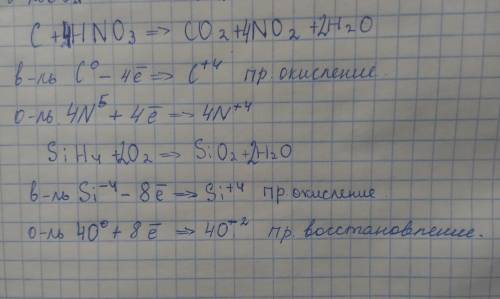 C + 4HNO₃ => CO₂ + 4NO₂ + 2H₂O
в-ль C⁰ - 4ē => C⁺⁴ пр. окисление
о-ль 4N⁵ + 4ē => 4N⁺⁴
SiH₄ + 2O₂ => SiO₂ + 2H₂O
в-ль Si⁻⁴ - 8ē => Si⁺⁴ пр. окисление
о-ль 4O⁰ + 8ē => 4O⁻² пр. восстановление.